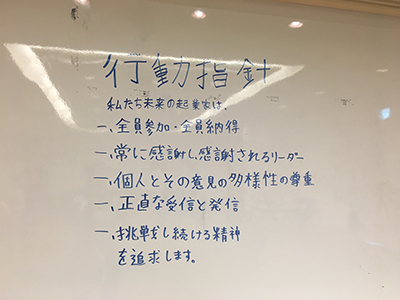 行動指針
私たち未来の起業家は、
一、全員参加・全員納得
一、常に感謝し、感謝されるリーダー
一、個人とその意見の多様性の尊重
一、正直な受信と発信
一、挑戦し続ける精神
を追求します。